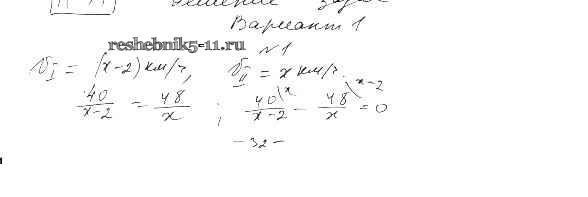 Решение задач
Вариант 1
reshebnik5-11.ru
№1
V_I = (x-2) км/ч, V_II = x км/ч.
40/(x-2) = 48/x ; 40\x/(x-2) - 48\x-2/x = 0
- 32 -